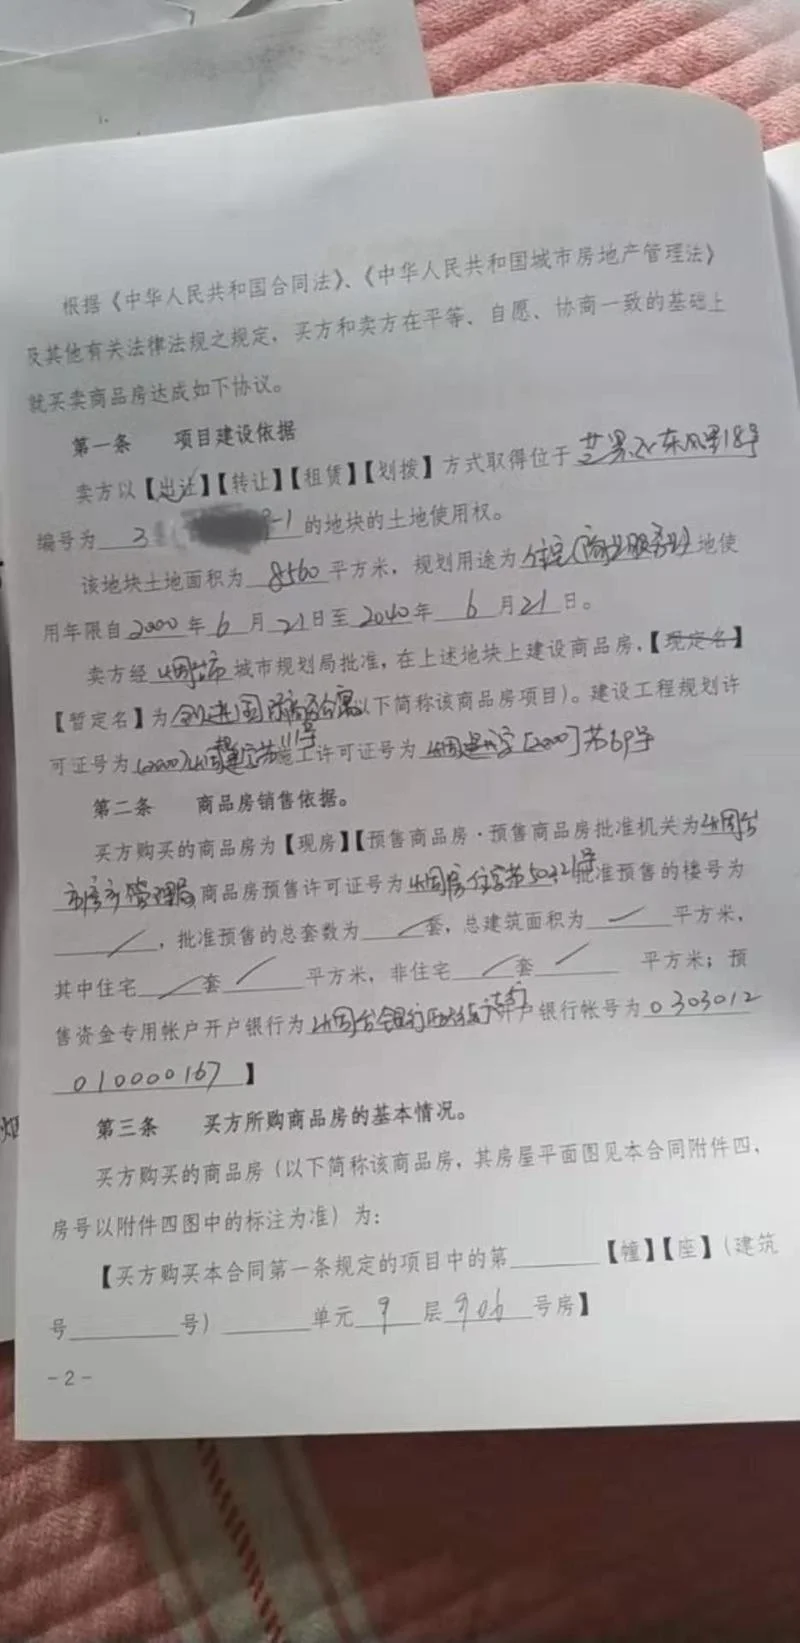 根据《中华人民共和国合同法》、《中华人民共和国城市房地产管理法》
及其他有关法律法规之规定，买方和卖方在平等、自愿、协商一致的基础上
就买卖商品房达成如下协议。
第一条 项目建设依据
卖方以【出让】【转让】【租赁】【划拨】方式取得位于芝罘区东风里18号
编号为 3 9-1 的地块的土地使用权。
该地块土地面积为 8560 平方米，规划用途为住宅(商业服务业)地使
用年限自 2000 年 6 月 21 日至 2040 年 6 月 21 日。
卖方经烟台市城市规划局批准，在上述地块上建设商品房，【现定名】
【暂定名】为 公寓以下简称该商品房项目）。建设工程规划许
可证号为(2000)烟 字第111号施工许可证号为 烟 字[2000]第69号
第二条 商品房销售依据。
买方购买的商品房为【现房】【预售商品房·预售商品房批准机关为烟台
市房产管理局商品房预售许可证号为烟房 字第50321号批准预售的楼号为
／，批准预售的总套数为／套，总建筑面积为／平方米，
其中住宅／套／平方米，非住宅／套／平方米；预
售资金专用帐户开户银行为烟台银行 开户银行帐号为0303012
010000167 】
第三条 买方所购商品房的基本情况。
买方购买的商品房（以下简称该商品房，其房屋平面图见本合同附件四，
房号以附件四图中的标注为准）为：
【买方购买本合同第一条规定的项目中的第______【幢】【座】（建筑
号______号）______单元 9 层 906 号房】
-2-